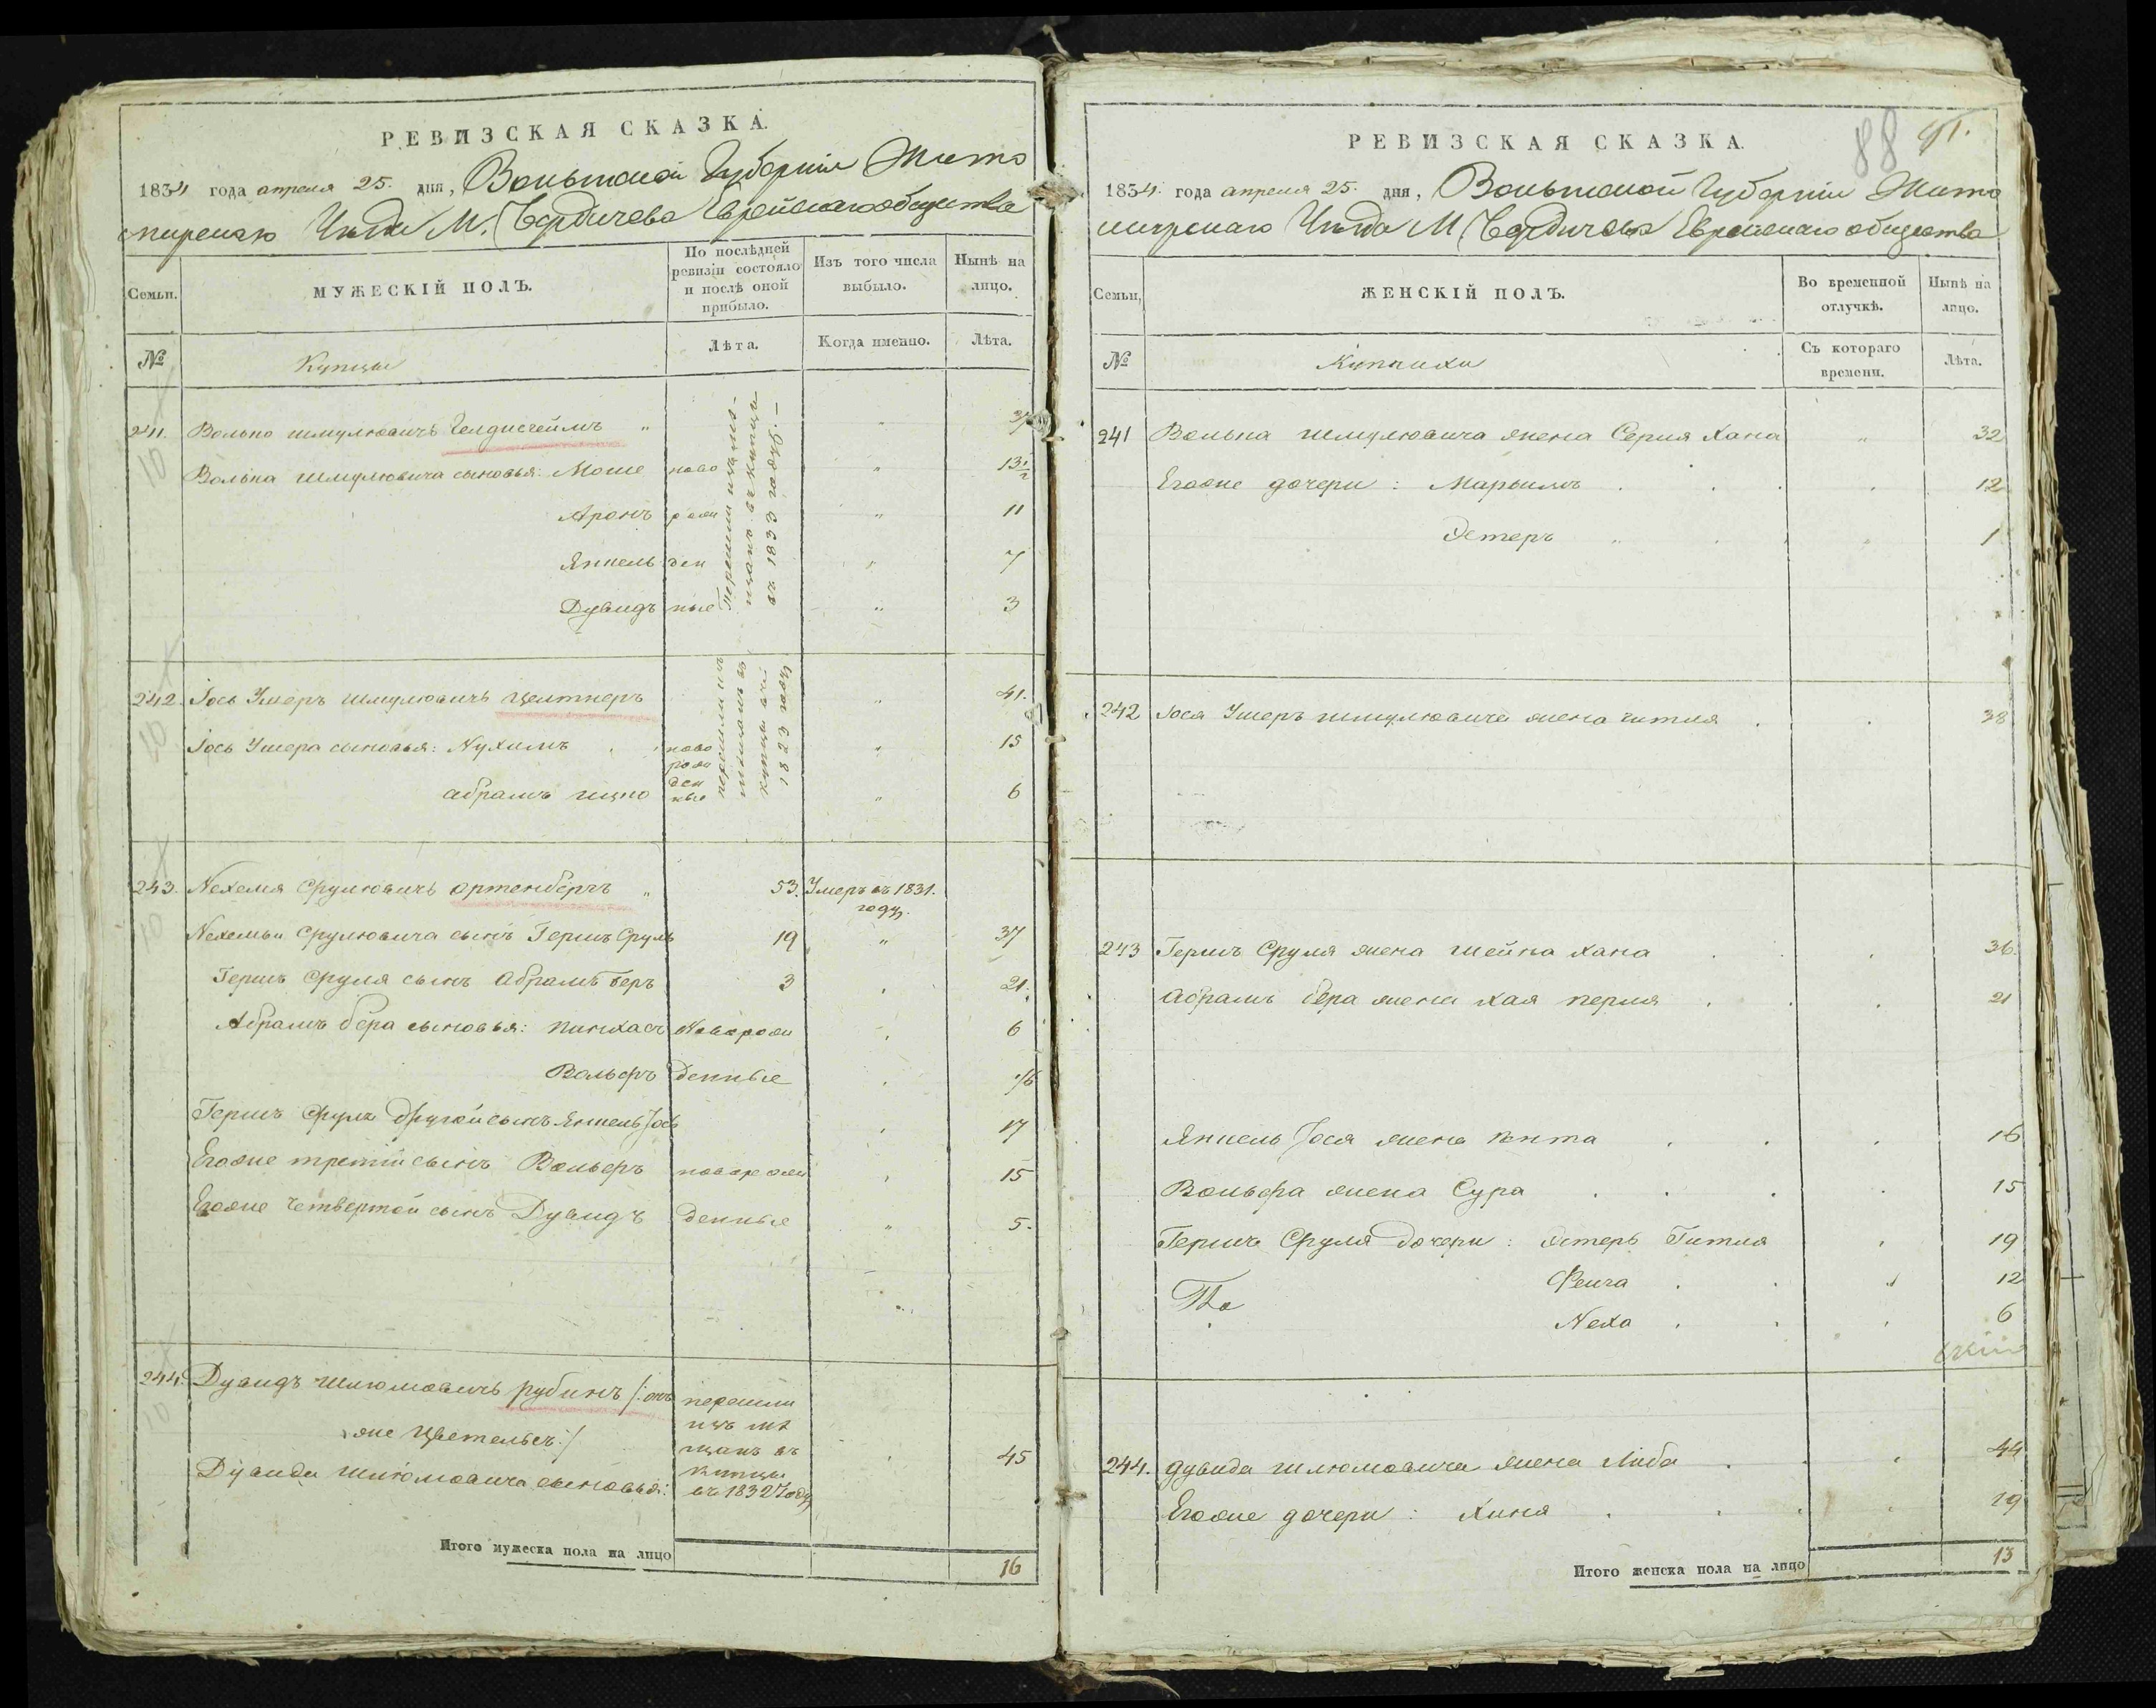 РЕВИЗСКАЯ СКАЗКА.
1834 года апреля 25. дня, Волынской Губерніи Жито
мирскаго Уѣзда М. Бердичева Еврейскаго общества
Семьи.
МУЖЕСКІЙ ПОЛЪ.
По послѣдней ревизіи состояло и послѣ оной прибыло.
Изъ того числа выбыло.
Нынѣ на лицо.
№
Купцы
Лѣта.
Когда именно.
Лѣта.
241. Волько Шмулювичъ "
Волька Шмулювича сыновья: Моше ново " 13½
Аронъ рож " 11
Янкель ден " 7
Дувидъ ные " 3
перешли изъ мѣ-
щанъ въ купцы
въ 1833 году. —
242. Іось Умеръ Шмулювичъ Целтнеръ " 41.
Іось Умера сыновья: Нухимъ ново " 15
рож
ден
Абрамъ Ицко ные " 6
перешли изъ
мещанъ въ
купцы въ
1823 году
243. Нехемя Срулювичъ Ортенбергъ " 53. Умеръ въ 1831.
году.
Нехемьи Срулювича сынъ Гершъ Сруль 19 " 37
Гершъ Сруля сынъ Абрамъ Беръ 3 21.
Абрамъ Бера сыновья: Пинхасъ Новорож 6
Вольфъ денные
Гершъ Сруля другой сынъ Янкель Іось 17
Егоже третій сынъ Вольфъ новорож 15
Егоже четвертой сынъ Дувидъ денные " 5.
244. Дувидъ Шлюмовичъ Рубинъ /: онъ
же Цветельсъ :/ 45
перешли
изъ мѣ
щанъ въ
купцы
въ 1832 году
Дувида Шлюмовича сыновья:
Итого мужеска пола на лицо 16
88
РЕВИЗСКАЯ СКАЗКА.
1834. года апреля 25. дня, Волынской Губерніи Жито
мирскаго Уѣзда М Бердичева Еврейскаго общества
Семьи,
ЖЕНСКІЙ ПОЛЪ.
Во временной отлучкѣ.
Нынѣ на лицо.
№
Купчихи
Съ котораго времени.
Лѣта.
241 Волька Шмулювича жена Серля Хана " 32
Егоже дочери: Марьимъ 12
Эстеръ " 1
242 Іося Умеръ Шмулювича жена Гитля 38
243 Гершъ Сруля жена Шейна Хана 36.
Абрамъ Бера жена Хая Перля 21
Янкель Іося жена Ента 16
Вольфа жена Сура 15
Гершъ Сруля дочери: Эстеръ Гитля 19
Фейга 12
Неха 6
244. Дувида Шлюмовича жена Либа 44
Егоже дочери: Хиня 19
Итого женска пола на лицо 13